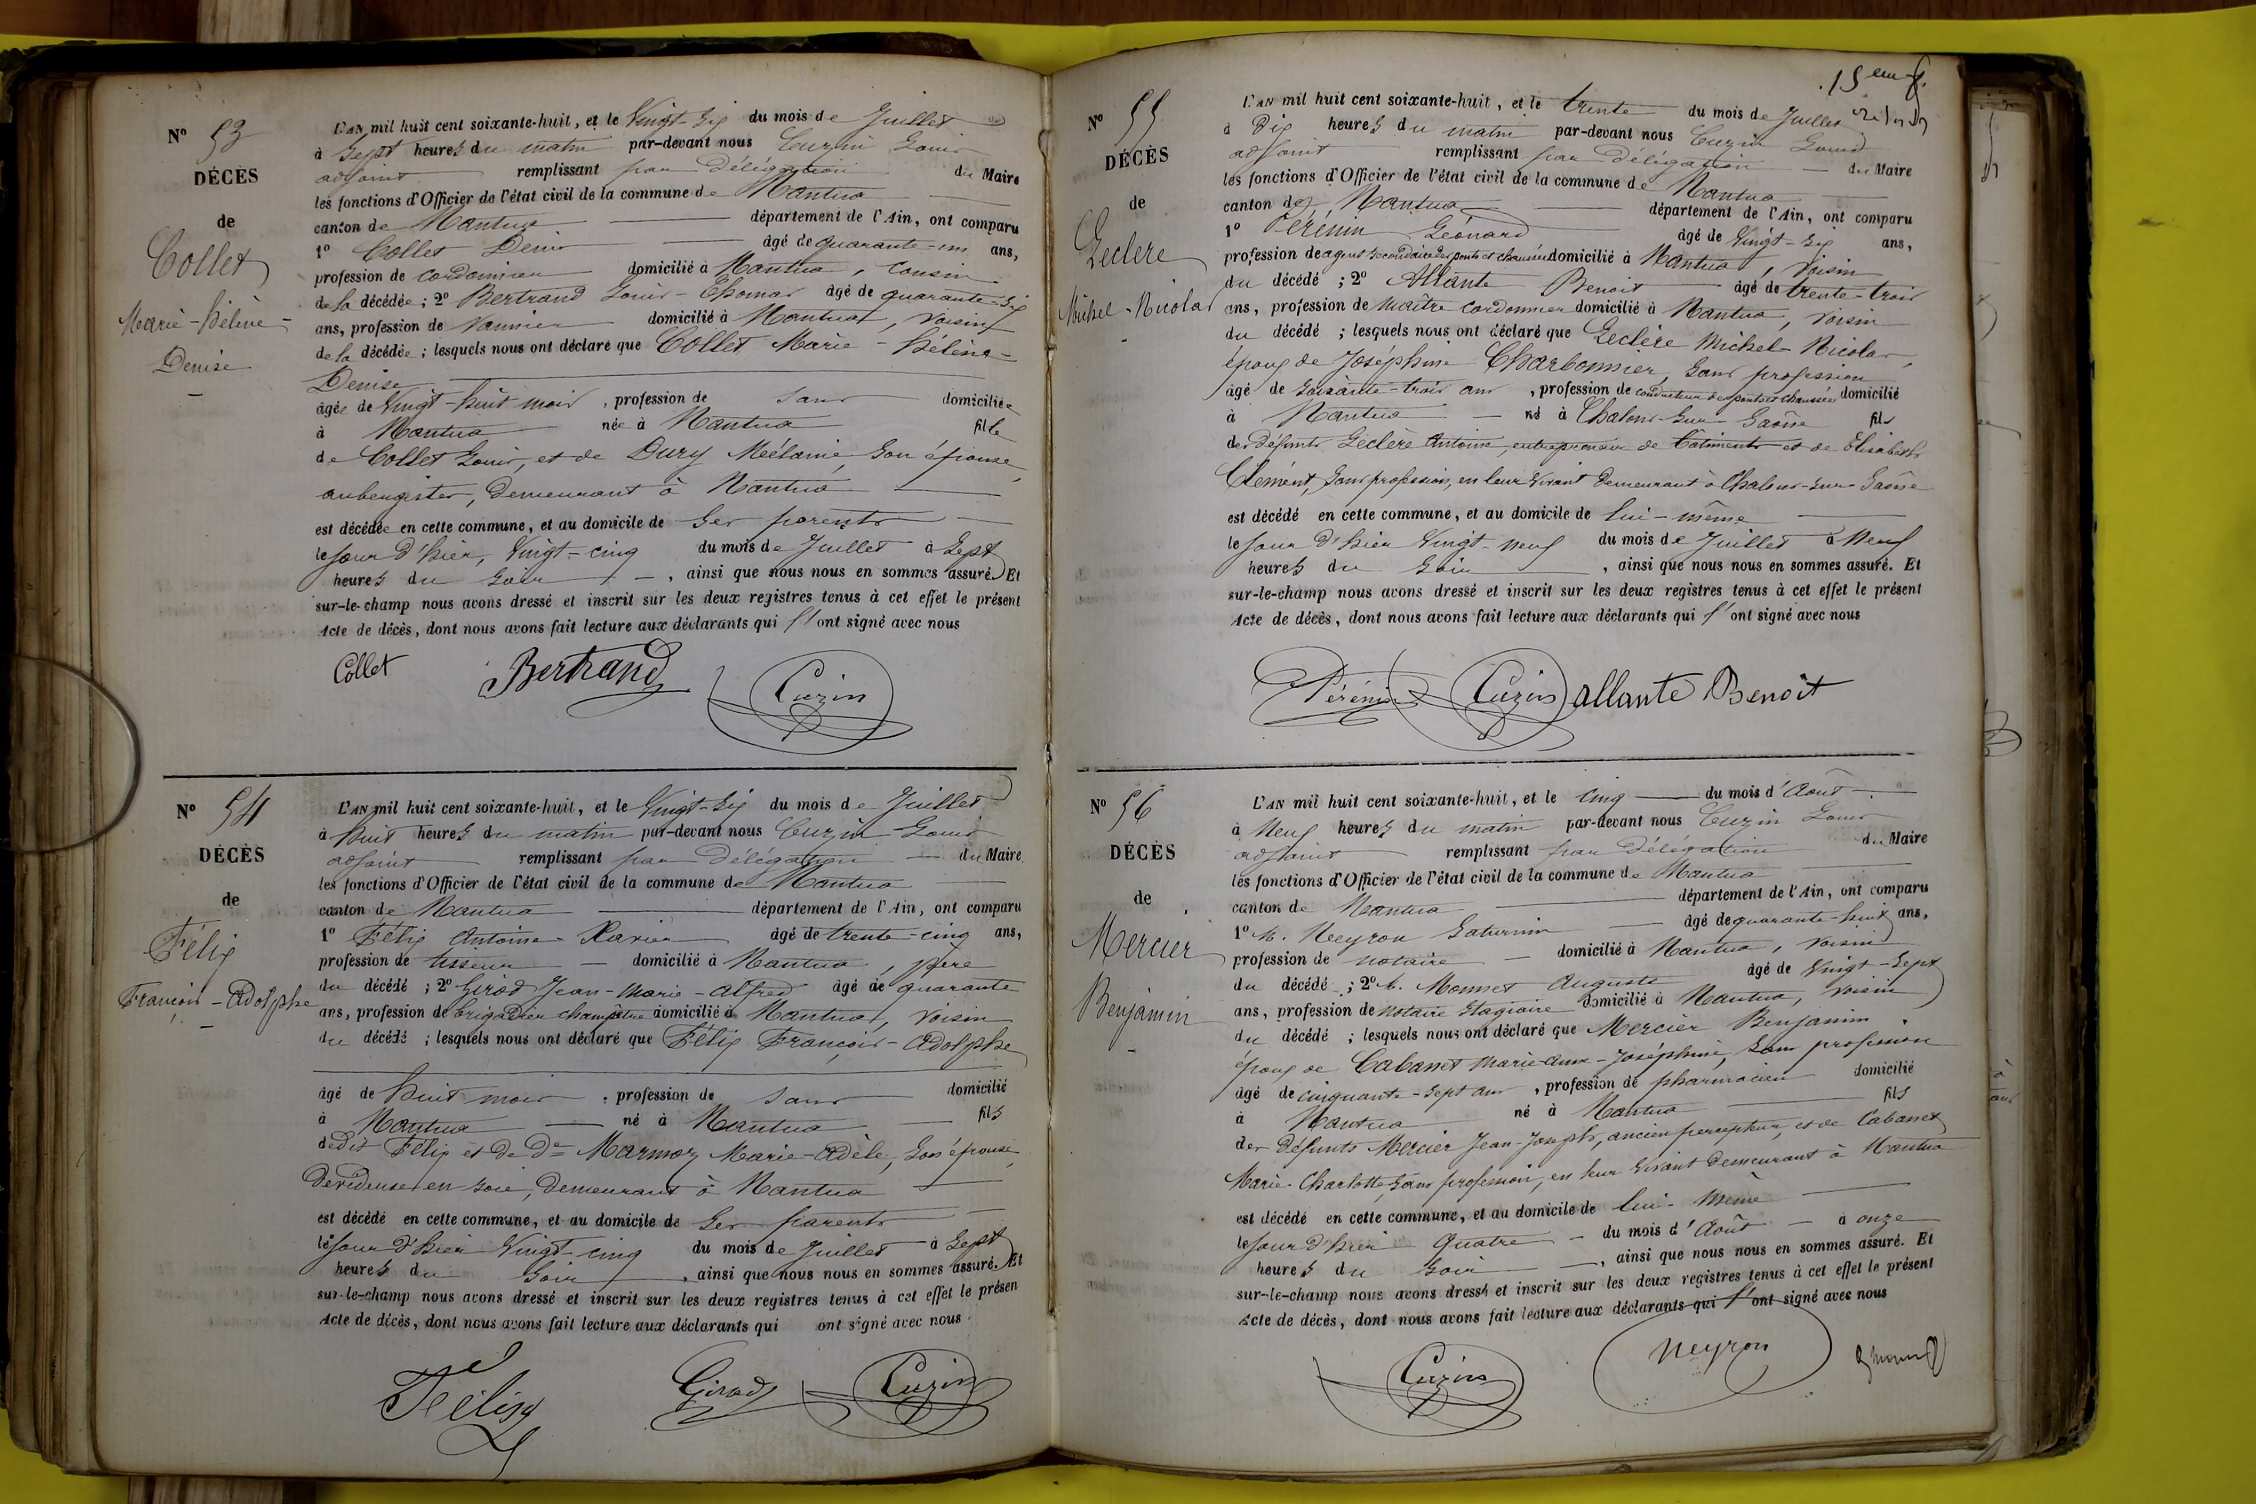 N° 53
DÉCÈS
de
Collet
Marie-hélène-
Denise
L'AN mil huit cent soixante-huit, et le Vingt-six du mois de Juillet
à sept heures du matin par-devant nous Cuzin Louis
adjoint remplissant par délégation du Maire
les fonctions d'Officier de l'état civil de la commune de Nantua
canton de Nantua département de l'Ain, ont comparu
1° Collet Denis âgé de quarante-un ans,
profession de cordonnier domicilié à Nantua, cousin
de la décédée; 2° Bertrand Louis-Thomas âgé de quarante-six
ans, profession de Vannier domicilié à Nantua, voisin
de la décédée; lesquels nous ont déclaré que Collet Marie-hélène-
Denise
âgée de Vingt-huit mois, profession de sans domiciliée
à Nantua née à Nantua fille
de Collet Louis, et de Dury Mélanie, son épouse,
aubergistes, demeurant à Nantua
est décédée en cette commune, et au domicile de ses parents
le jour d'hier, Vingt-cinq du mois de Juillet à sept
heures du soir, ainsi que nous nous en sommes assuré. Et
sur-le-champ nous avons dressé et inscrit sur les deux registres tenus à cet effet le présent
Acte de décès, dont nous avons fait lecture aux déclarants qui l'ont signé avec nous
Collet Bertrand Cuzin
N° 54
DÉCÈS
de
Félix
François-Adolphe
L'AN mil huit cent soixante-huit, et le Vingt-six du mois de Juillet
à huit heures du matin par-devant nous Cuzin Louis
adjoint remplissant par délégation du Maire
les fonctions d'Officier de l'état civil de la commune de Nantua
canton de Nantua département de l'Ain, ont comparu
1° Félix Antoine-Xavier âgé de trente-cinq ans,
profession de tisseur domicilié à Nantua, père
du décédé; 2° Girod Jean-Marie-Alfred âgé de quarante
ans, profession de brigadier champêtre domicilié à Nantua, voisin
du décédé; lesquels nous ont déclaré que Félix François-Adolphe
âgé de huit mois, profession de sans domicilié
à Nantua né à Nantua fils
de dit Félix et de De Marmoz Marie-Adèle, son épouse,
dévideuse en soie, demeurant à Nantua
est décédé en cette commune, et au domicile de ses parents
le jour d'hier Vingt-cinq du mois de Juillet à sept
heures du soir, ainsi que nous nous en sommes assuré. Et
sur-le-champ nous avons dressé et inscrit sur les deux registres tenus à cet effet le présen
Acte de décès, dont nous avons fait lecture aux déclarants qui ont signé avec nous
Félix Girod Cuzin
15eme f.
N° 55
DÉCÈS
de
Leclère
Michel-Nicolas
L'AN mil huit cent soixante-huit, et le trente du mois de Juillet
à Dix heures du matin par-devant nous Cuzin Louis
adjoint remplissant par délégation du Maire
les fonctions d'Officier de l'état civil de la commune de Nantua
canton de Nantua département de l'Ain, ont comparu
1° Pérénin Léonard âgé de Vingt-six ans,
profession de agent secondaire des ponts et chaussées domicilié à Nantua, voisin
du décédé; 2° Allante Benoit âgé de trente-trois
ans, profession de maître cordonnier domicilié à Nantua, voisin
du décédé; lesquels nous ont déclaré que Leclère Michel-Nicolas,
époux de Joséphine Charbonnier, sans profession
âgé de soixante-trois ans, profession de conducteur des ponts et chaussées domicilié
à Nantua né à Chalons-sur-Saône fils
des défunts Leclère Antoine, entrepreneur de bâtiments et de Elisabeth
Clément, sans profession, en leur vivant demeurant à Chalons-sur-Saône
est décédé en cette commune, et au domicile de lui-même
le jour d'hier Vingt-neuf du mois de Juillet à Neuf
heures du soir, ainsi que nous nous en sommes assuré. Et
sur-le-champ nous avons dressé et inscrit sur les deux registres tenus à cet effet le présent
Acte de décès, dont nous avons fait lecture aux déclarants qui l'ont signé avec nous
Pérénin Cuzin allante Benoit
N° 56
DÉCÈS
de
Mercier
Benjamin
L'AN mil huit cent soixante-huit, et le cinq du mois d'Août
à Neuf heures du matin par-devant nous Cuzin Louis
adjoint remplissant par délégation du Maire
les fonctions d'Officier de l'état civil de la commune de Nantua
canton de Nantua département de l'Ain, ont comparu
1° M. Neyron Saturnin âgé de quarante-huit ans,
profession de notaire domicilié à Nantua, voisin
du décédé; 2° M. Monnet Auguste âgé de Vingt-sept
ans, profession de notaire stagiaire domicilié à Nantua, voisin
du décédé; lesquels nous ont déclaré que Mercier Benjamin,
époux de Cabanet Marie-Anne-Joséphine, sans profession
âgé de cinquante-sept ans, profession de pharmacien domicilié
à Nantua né à Nantua fils
des défunts Mercier Jean-Joseph, ancien percepteur, et de Cabanet
Marie-Charlotte, sans profession, en leur vivant demeurant à Nantua
est décédé en cette commune, et au domicile de lui-même
le jour d'hier Quatre du mois d'Août à onze
heures du soir, ainsi que nous nous en sommes assuré. Et
sur-le-champ nous avons dressé et inscrit sur les deux registres tenus à cet effet le présent
Acte de décès, dont nous avons fait lecture aux déclarants qui l'ont signé avec nous
Cuzin Neyron